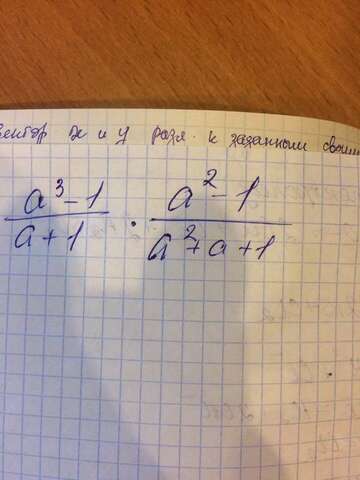 вектор x и y разл. к заданным своим
a³-1 / a+1 · a²-1 / a²+a+1